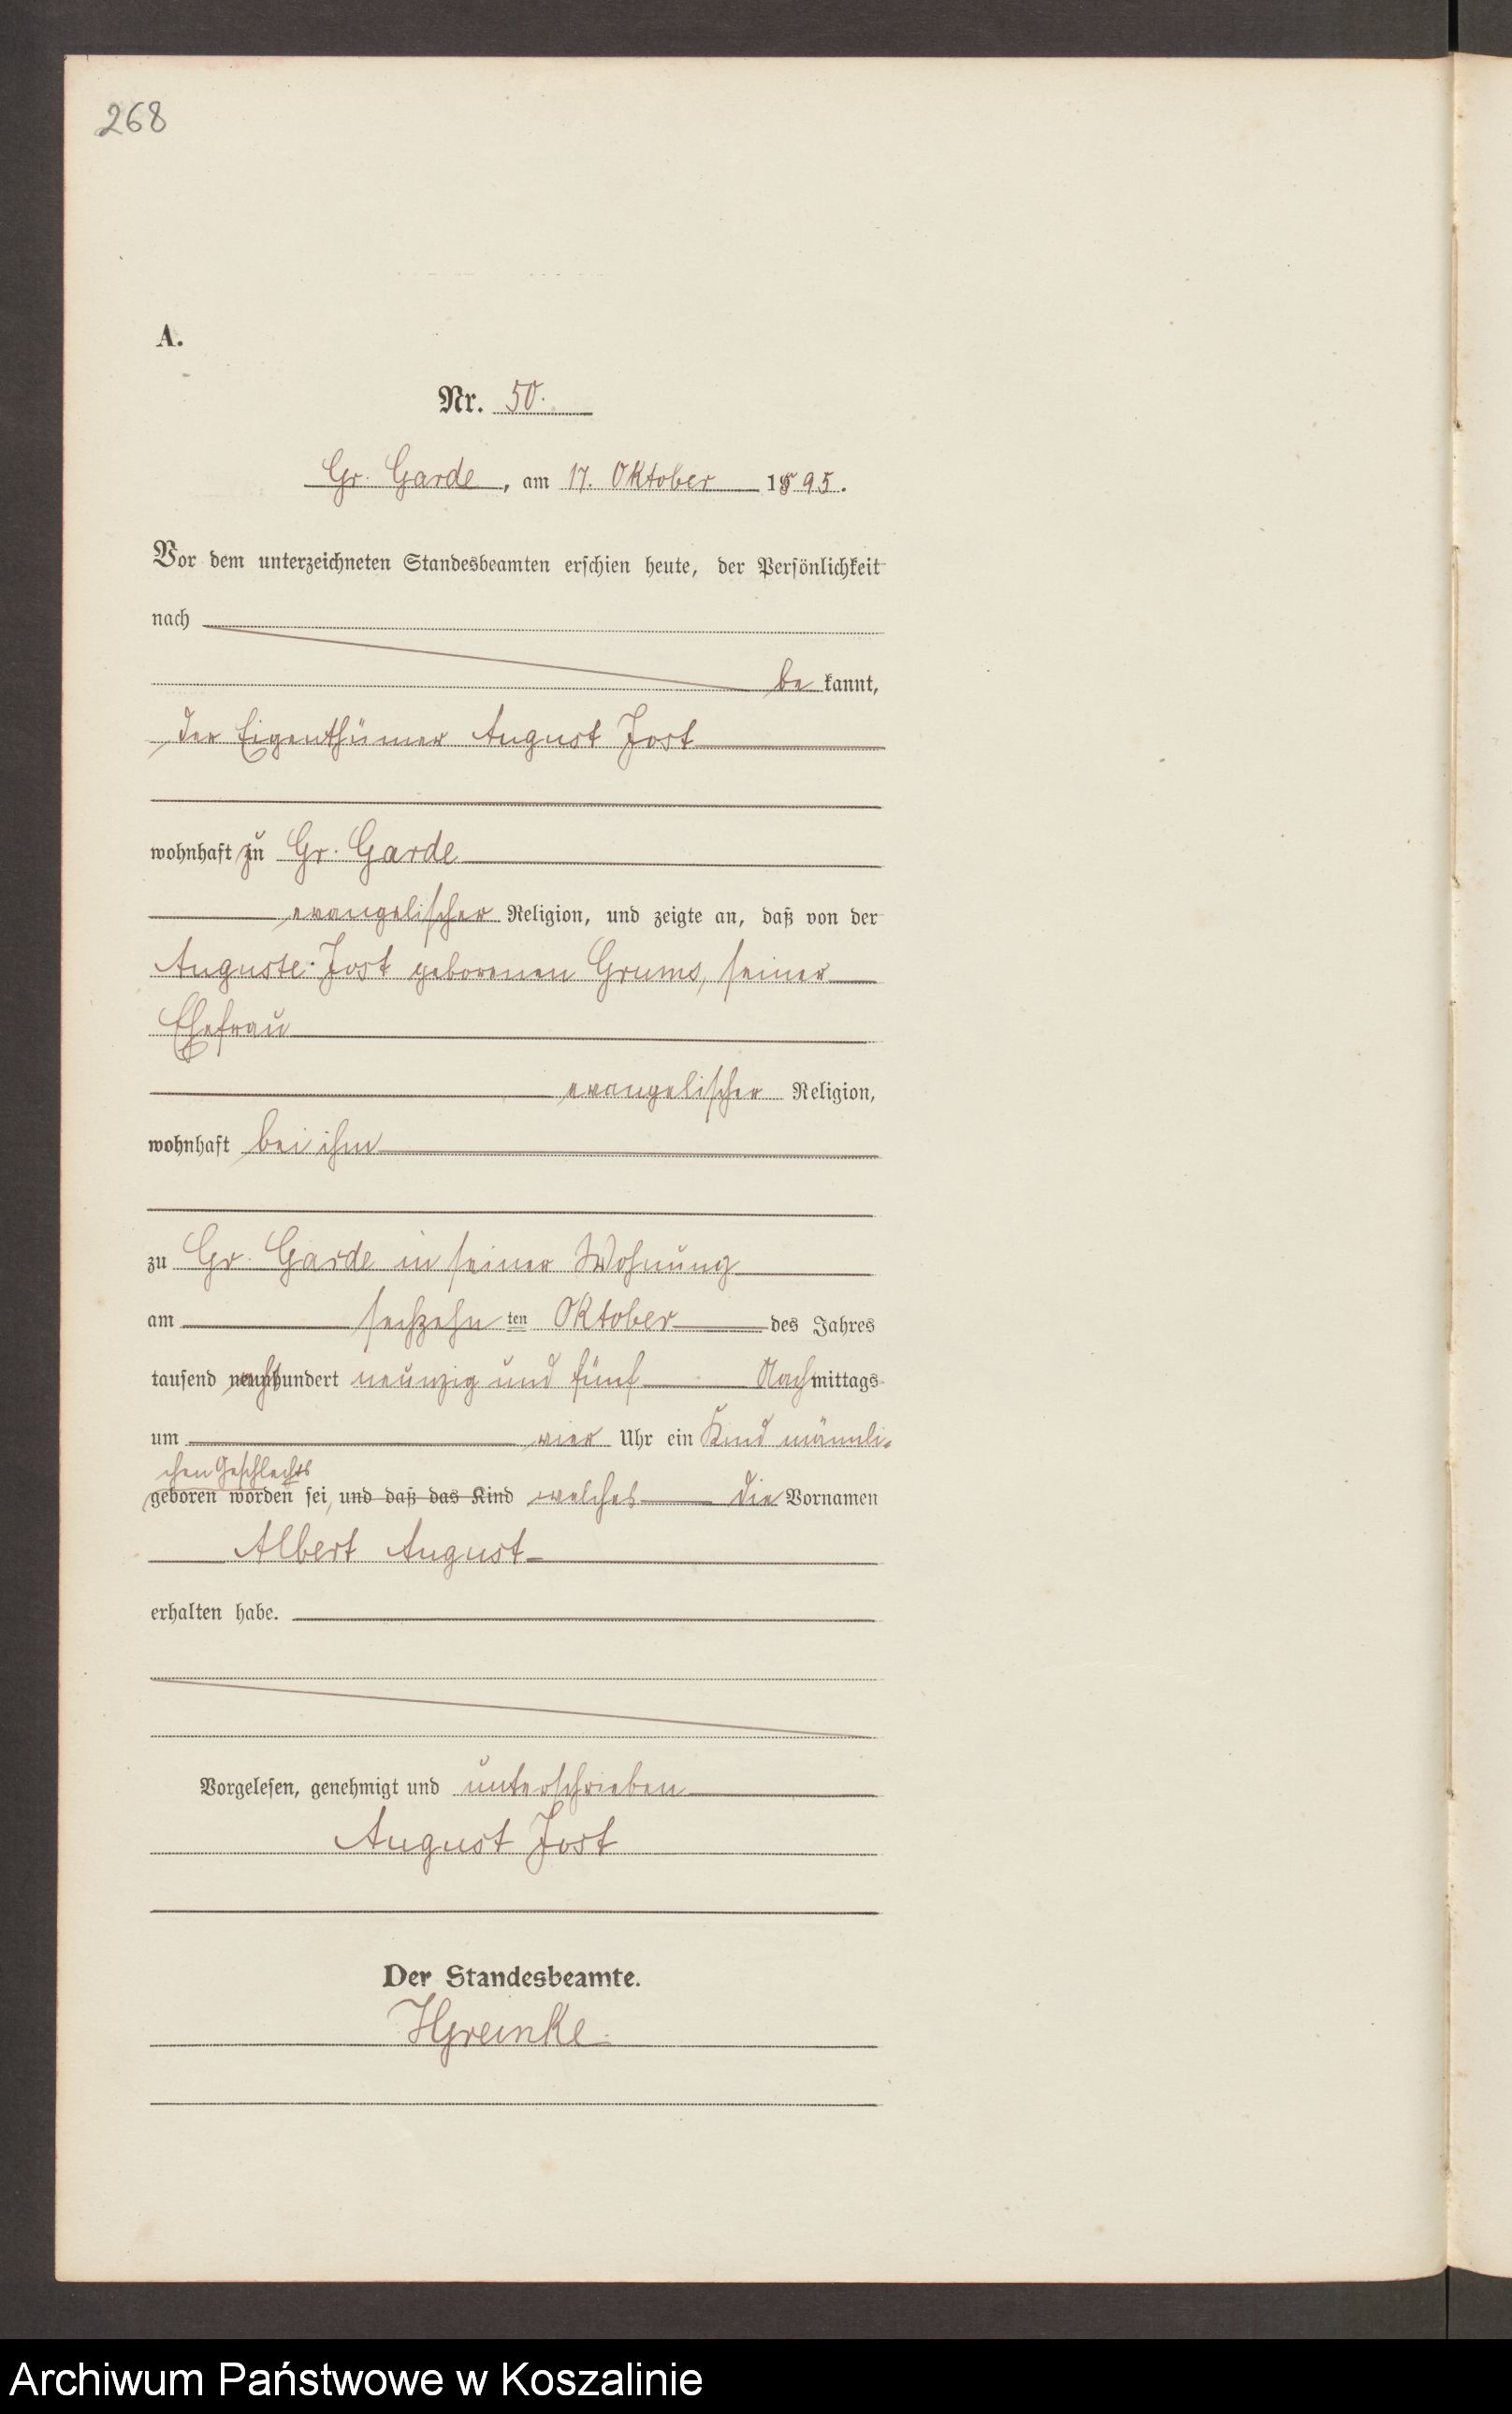 268
A.
Nr. 50.
Gr. Garde, am 17. Oktober 1895.
Vor dem unterzeichneten Standesbeamten erschien heute, der Persönlichkeit
nach
be kannt,
der Eigenthümer August Jost
wohnhaft zu Gr. Garde
evangelischer Religion, und zeigte an, daß von der
Auguste Jost geborenen Grums, seiner
Ehefrau
evangelischer Religion,
wohnhaft bei ihm
zu Gr. Garde in seiner Wohnung
am sechzehn ten Oktober des Jahres
tausend achthundert neunzig und fünf Nachmittags
um vier Uhr ein Kind männli-
chen Geschlechts
geboren worden sei, und daß das Kind welches die Vornamen
Albert August
erhalten habe.
Vorgelesen, genehmigt und unterschrieben
August Jost
Der Standesbeamte.
HGreinke.
Archiwum Państwowe w Koszalinie